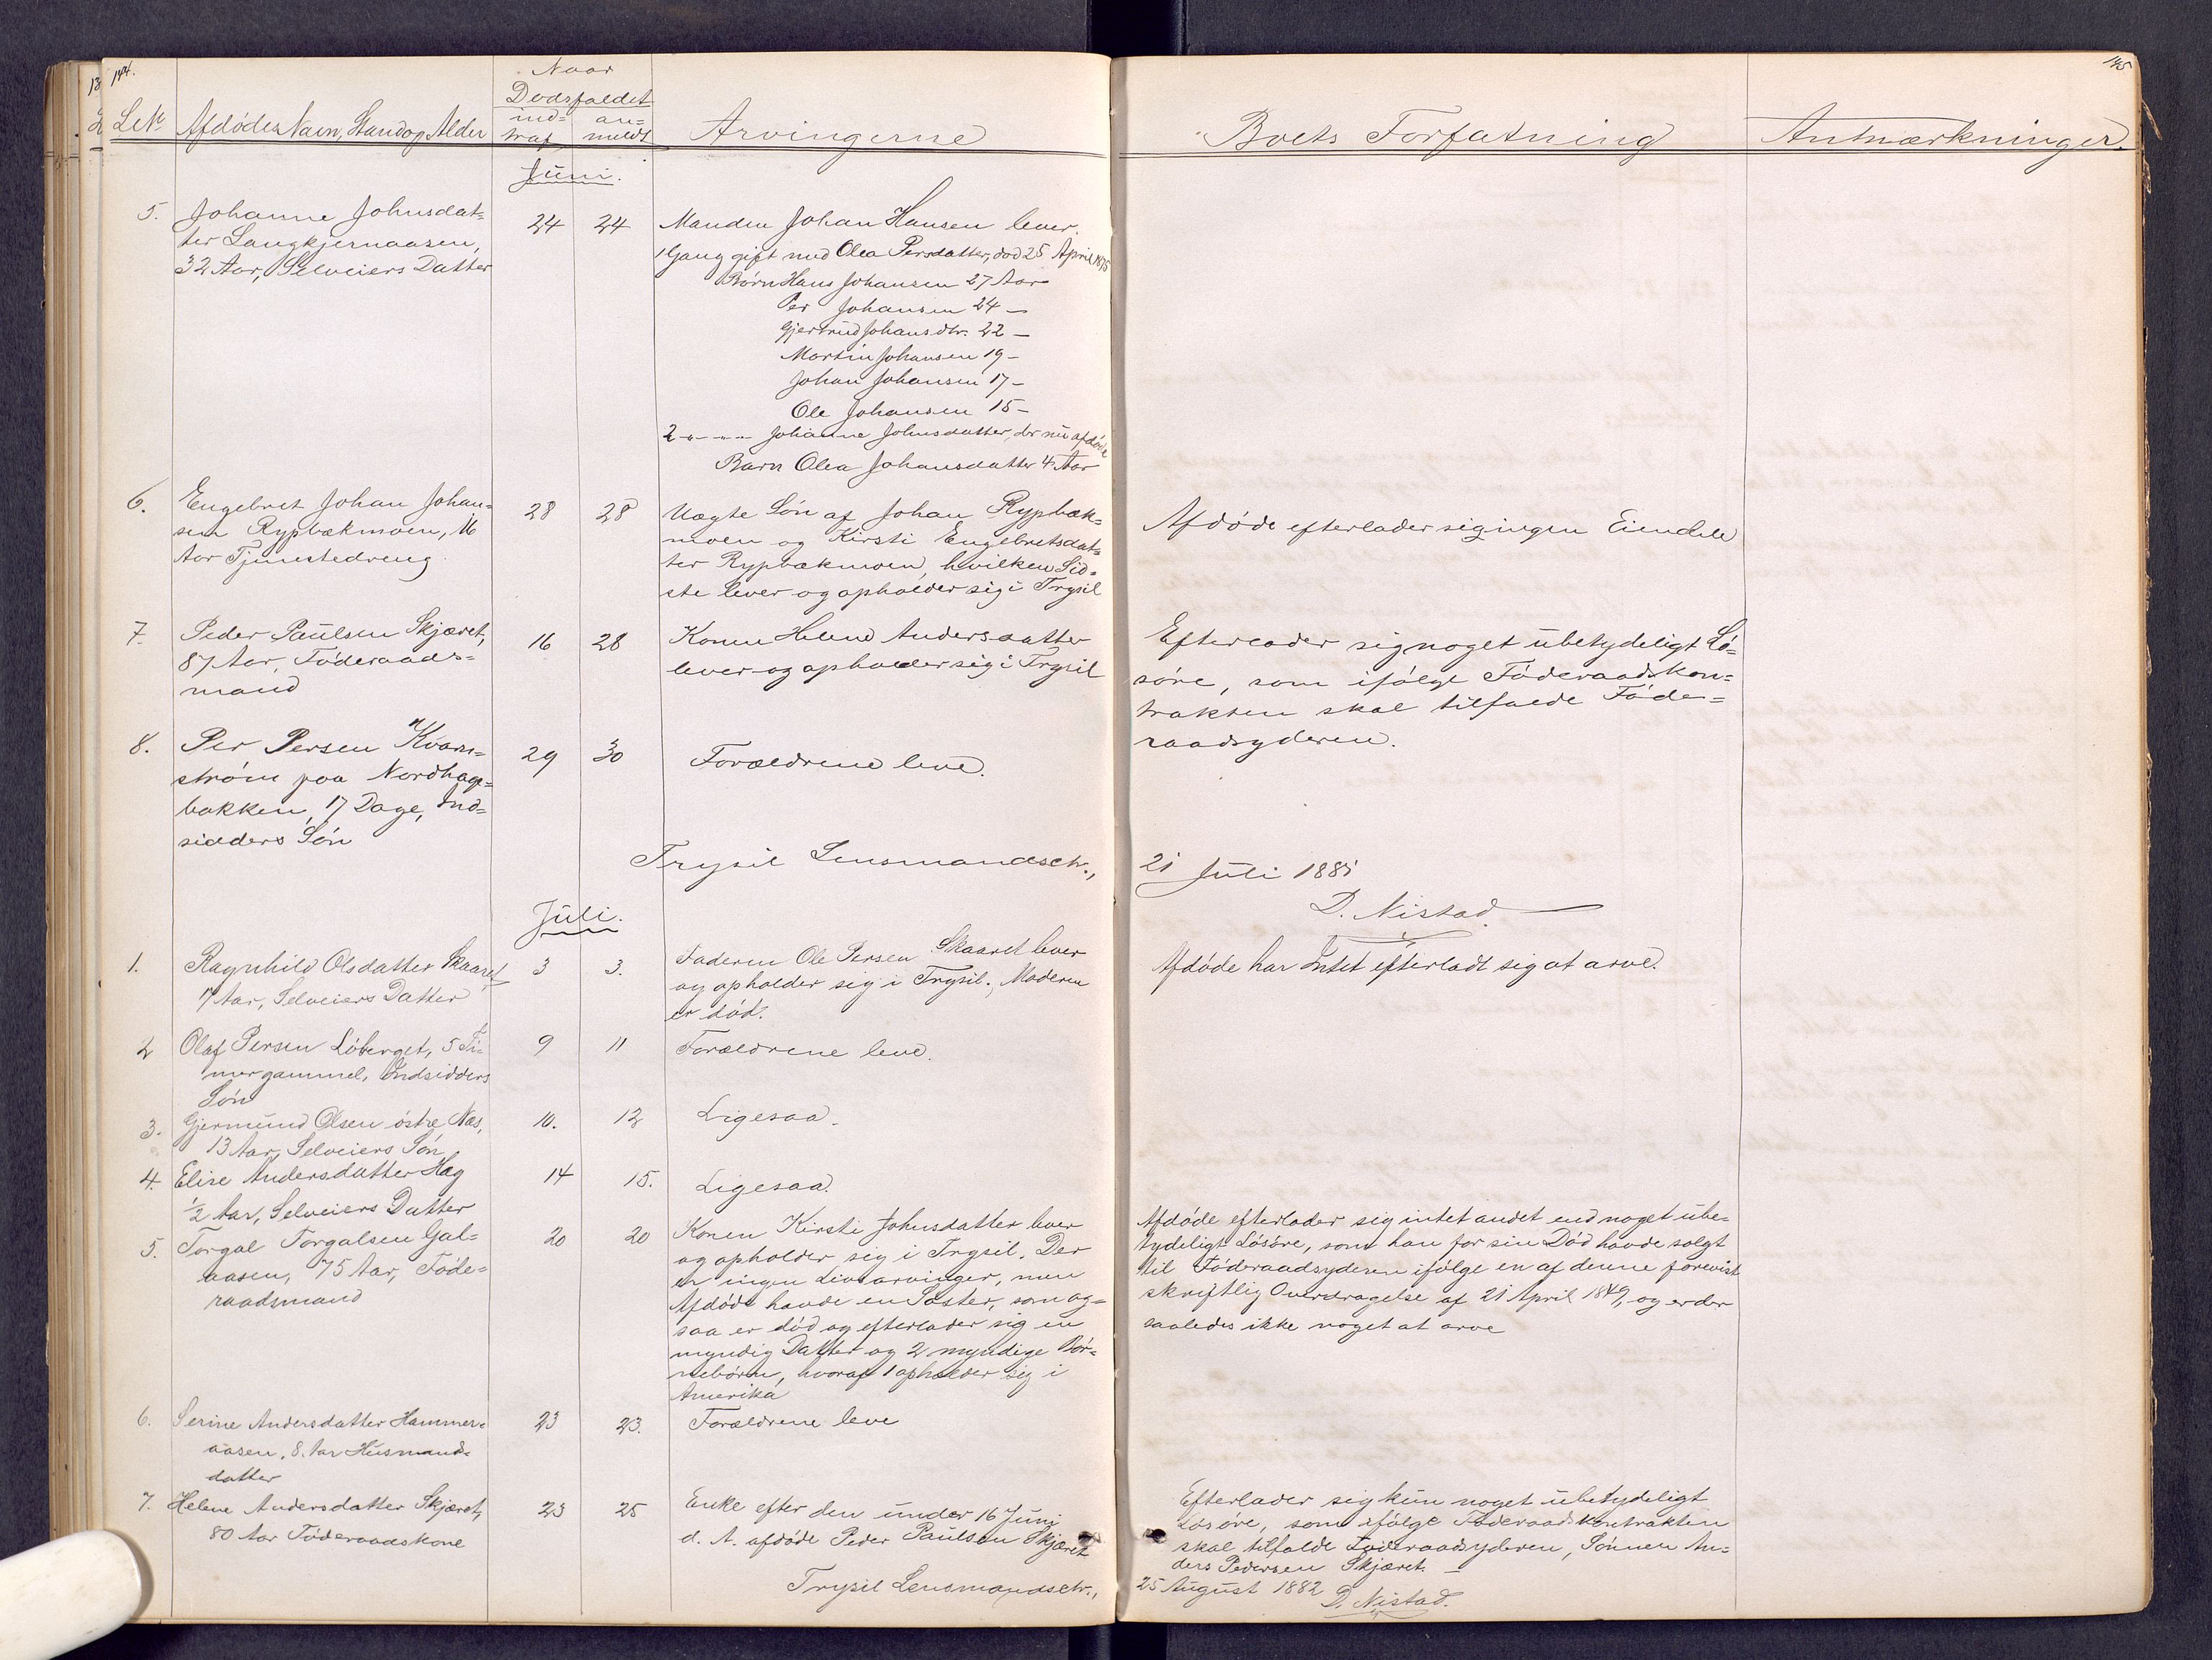 144.
145
LNo
Afdødes Navn, Stand og Alder
Naar
Dødsfaldet
ind-
traf
an-
meldt
Arvingerne
Boets Forfatning
Anmærkninger.
Juni.
5.
Johanne Johnsdat-
ter Langkjernaasen,
32 Aar, Selveiers Datter
24
24
Manden Johan Hansen lever.
1 Gang gift med Olea Persdatter, død 25 April 1875
Børn Hans Johansen 27 Aar
Per Johansen 24 —
Gjertrud Johansdtr. 22 —
Martin Johansen 19 —
Johan Johansen 17 —
Ole Johansen 15 —
2 - " - - " - Johanne Johnsdatter, der nu afdøde
Barn Olea Johansdatter 4 Aar
6.
Engebret Johan Johan-
sen Rypbækmoen, 16
Aar Tjenestedreng
28
28
Uægte Søn af Johan Rypbæk-
moen og Kirsti Engebretsdat-
ter Rypbækmoen, hvilken Sid-
ste lever og opholder sig i Trysil
Afdøde efterlader sig ingen Eiendele
7.
Peder Paulsen Skjæret,
87 Aar, Føderaads-
mand
16
28
Konen Helene Andersdatter
lever og opholder sig i Trysil
Efterlader sig noget ubetydeligt Lø-
søre, som ifølge Føderaadskon-
trakten skal tilfalde Føde-
raadsyderen.
8.
Per Persen Kvarn-
strøm paa Nordhage-
bakken, 17 Dage, Ind-
sidders Søn
29
30
Forældrene leve.
Trysil Lensmandsetr.,
21 Juli 1881
D. Nistad.
Juli.
1.
Ragnhild Olsdatter Skaaret
7 Aar, Selveiers Datter
3
3.
Faderen Ole Persen Skaaret lever
og opholder sig i Trysil. Moderen
er død.
Afdøde har Intet efterladt sig at arve.
2
Olaf Persen Løberget, 5 Ti-
mer gammel, Indsidders
Søn
9
11
Forældrene leve.
3.
Gjermund Olsen østre Næs,
13 Aar, Selveiers Søn
10.
12
Ligesaa.
4.
Elise Andersdatter Hag
1/2 Aar, Selveiers Datter
14
15.
Ligesaa.
5.
Torgal Torgalsen Gal-
aasen, 75 Aar, Føde-
raadsmand
20
20
Konen Kirsti Johnsdatter lever
og opholder sig i Trysil. Der
er ingen Livsarvinger, men
Afdøde havde en Søster, som og-
saa er død og efterlader sig en
myndig Datter og 2 myndige Bør-
nebørn, hvoraf 1 opholder sig i
Amerika
Afdøde efterlader sig intet andet end noget ube-
tydeligt Løsøre, som han før sin Død havde solgt
til Føderaadsyderen ifølge en af denne forevist
skriftlig Overdragelse af 21 April 1849, og er der
saaledes ikke noget at arve
6.
Serine Andersdatter Hammer-
aasen, 8. Aar Husmands-
datter
23
23.
Forældrene leve
7.
Helene Andersdatter Skjæret,
80 Aar Føderaadskone
23
25
Enke efter den under 16 Juni
d. A. afdøde Peder Paulsen Skjæret
Efterlader sig kun noget ubetydeligt
Løsøre, som ifølge Føderaadskontrakten
skal tilfalde Føderaadsyderen, Sønnen An-
ders Pedersen Skjæret. —
Trysil Lensmandsetr.,
25 August 1882 D. Nistad.